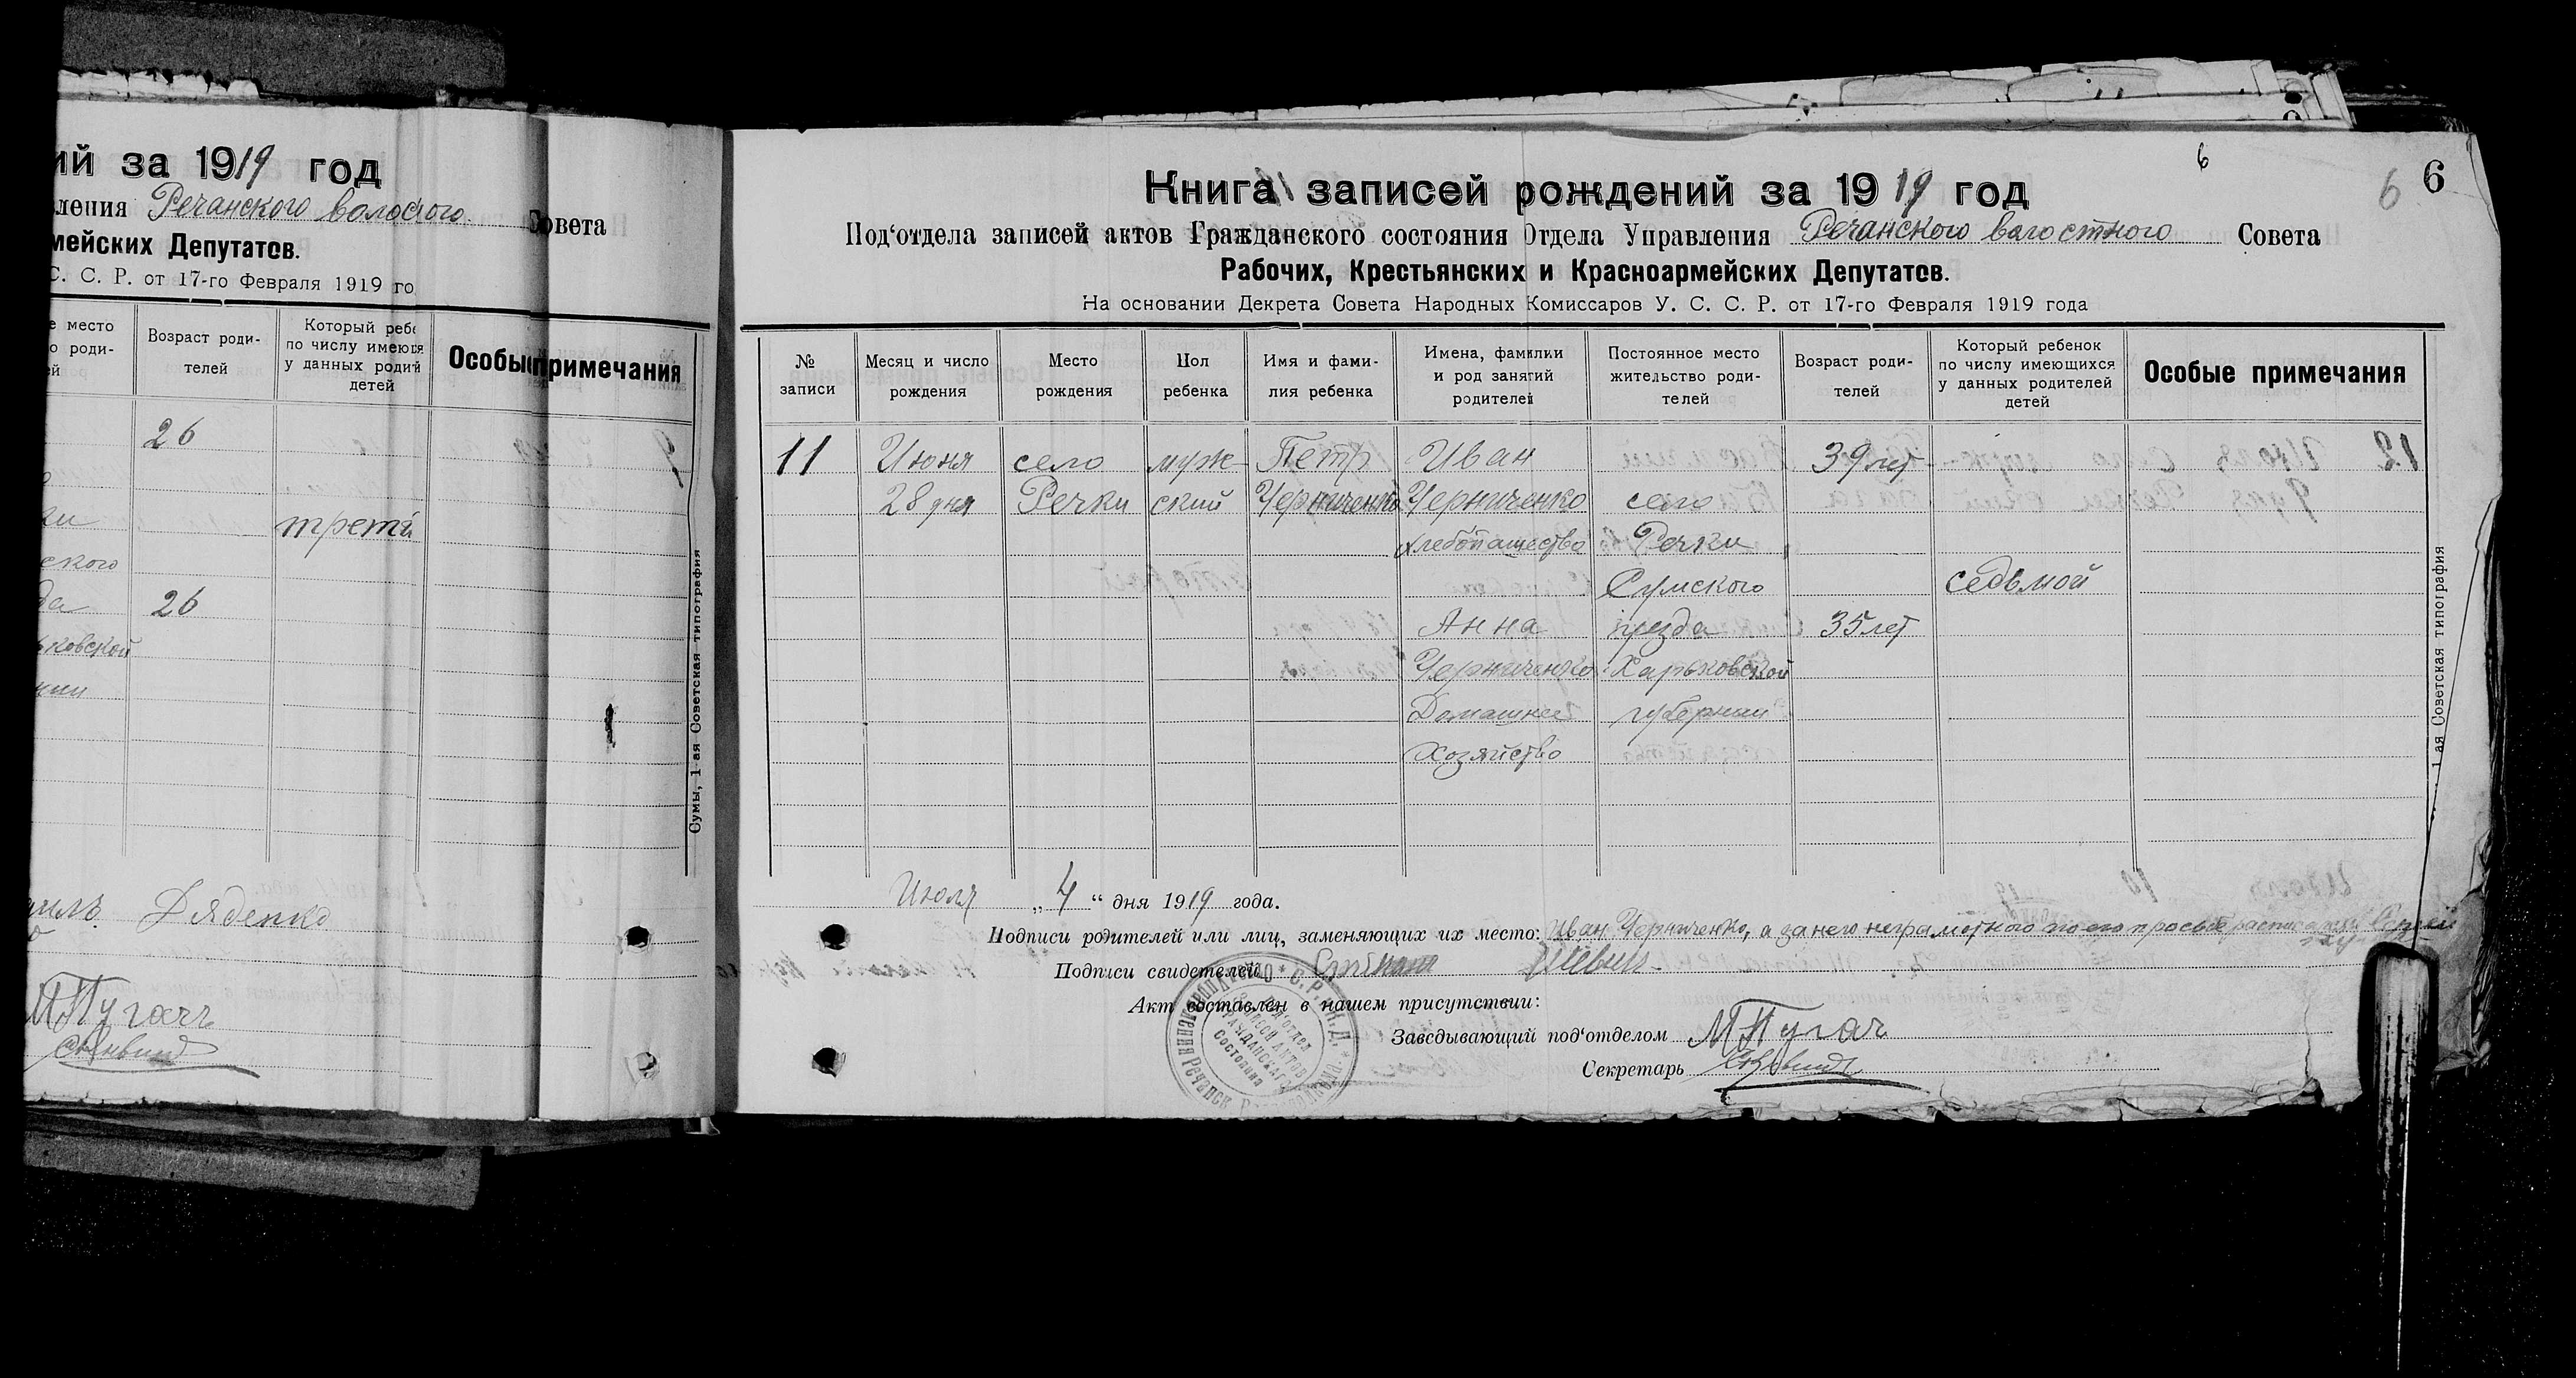 ий за 1919 год
вления Речанского волосного Совета
мейских Депутатов.
С. С. Р. от 17-го Февраля 1919 го
е место
о роди-
ей
Возраст роди-
телей
Который ребе
по числу имеюся
у данных родит
детей
Особые примечания
26
третй
ского
да
26
ьковской
нии
Дяденко
МПугачъ
Сумы, 1-ая Советская типография
6
6
6
Книга записей рождений за 1919 год
Под'отдела записей актов Гражданского состояния Отдела Управления Речанского волостного Совета
Рабочих, Крестьянских и Красноармейских Депутатов.
На основании Декрета Совета Народных Комиссаров У. С. С. Р. от 17-го Февраля 1919 года
№
записи
Месяц и число
рождения
Место
рождения
Пол
ребенка
Имя и фами-
лия ребенка
Имена, фамилии
и род занятий
родителей
Постоянное место
жительство роди-
телей
Возраст роди-
телей
Который ребенок
по числу имеющихся
у данных родителей
детей
Особые примечания
11 Июня село муж- Петр Иван 39 лет
28 дня Речки ский Черниченко Черниченко село
хлебопашество Речки
Сумского седьмой
Анна уезда 35 лет
Черниченко Харьковской
Домашнее губернии
Хозяйство
Июля „4“ дня 1919 года.
Подписи родителей или лиц, заменяющих их место: Иван Черниченко, а за него неграмотного по его просьбе
Подписи свидетелей
Акт составлен в нашем присутствии:
Заведывающий под'отделом МПугач
Секретарь
1-ая Советская типография